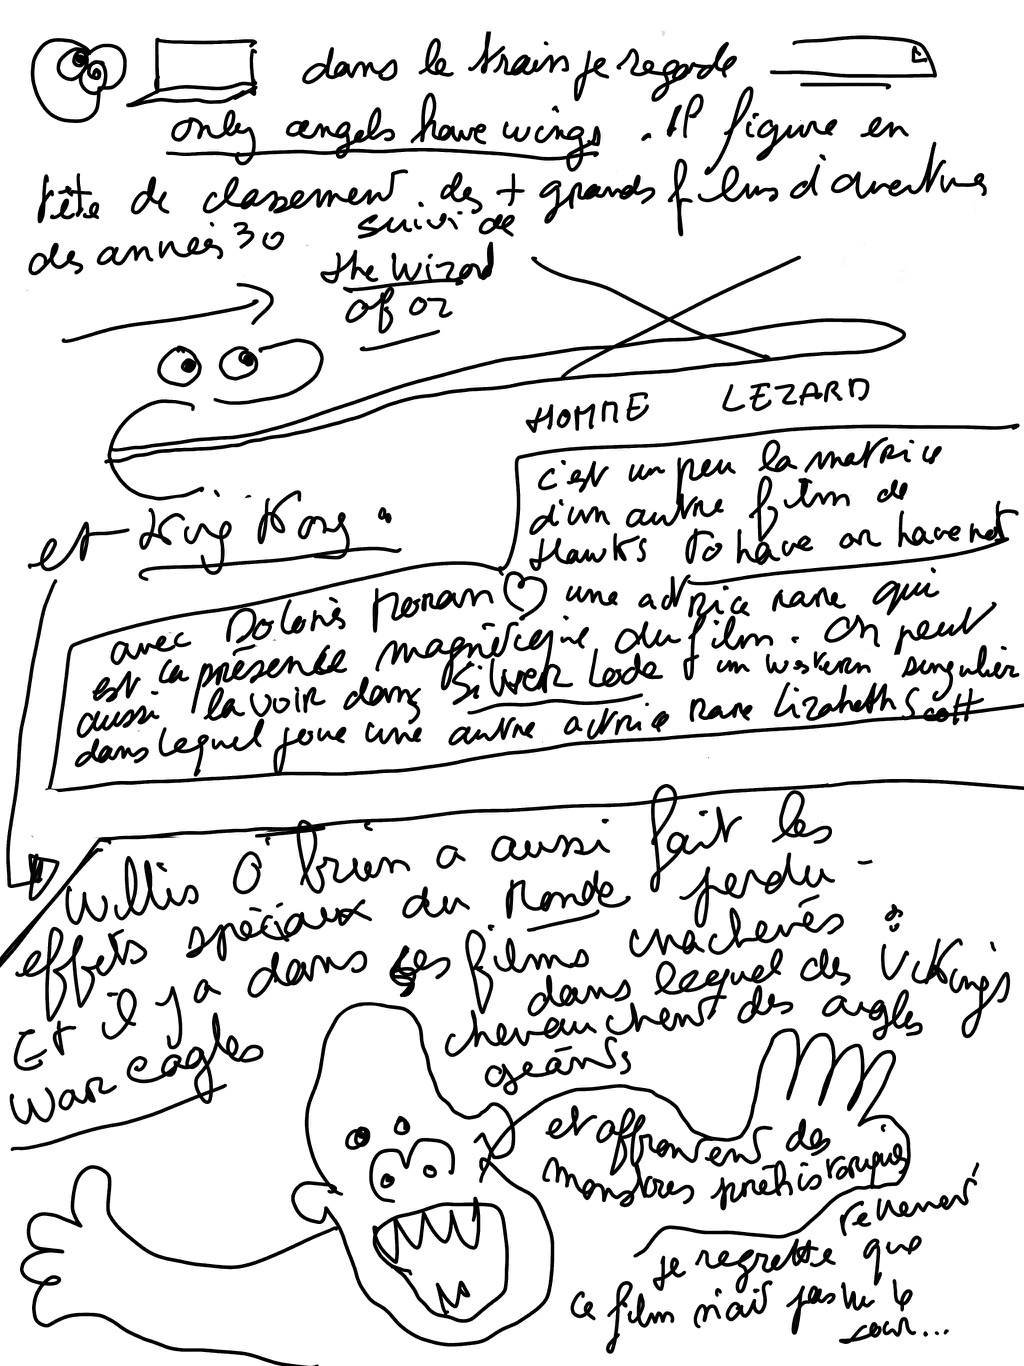 dans le train je regarde
only angels have wings. Il figure en
tête de classement des + grands films d'aventures
des années 30
suivi de
the Wizard
of oz
HOMME LEZARD
et King Kong.
c'est un peu la matrice
d'un autre film de
Hawks To have or have not
avec Dolorès Moran une actrice rare qui
est la présence magnétique du film. On peut
aussi la voir dans Silver Lode un western singulier
dans lequel joue une autre actrice rare Lizabeth Scott
Willis O'brien a aussi fait les
effets spéciaux du Monde perdu -
Et il y a dans ses films inachevés :
War eagles
dans lequel des Vikings
chevauchent des aigles
géants
et affrontent des
monstres préhistoriques
je regrette tellement que
ce film n'ait pas vu le
jour...